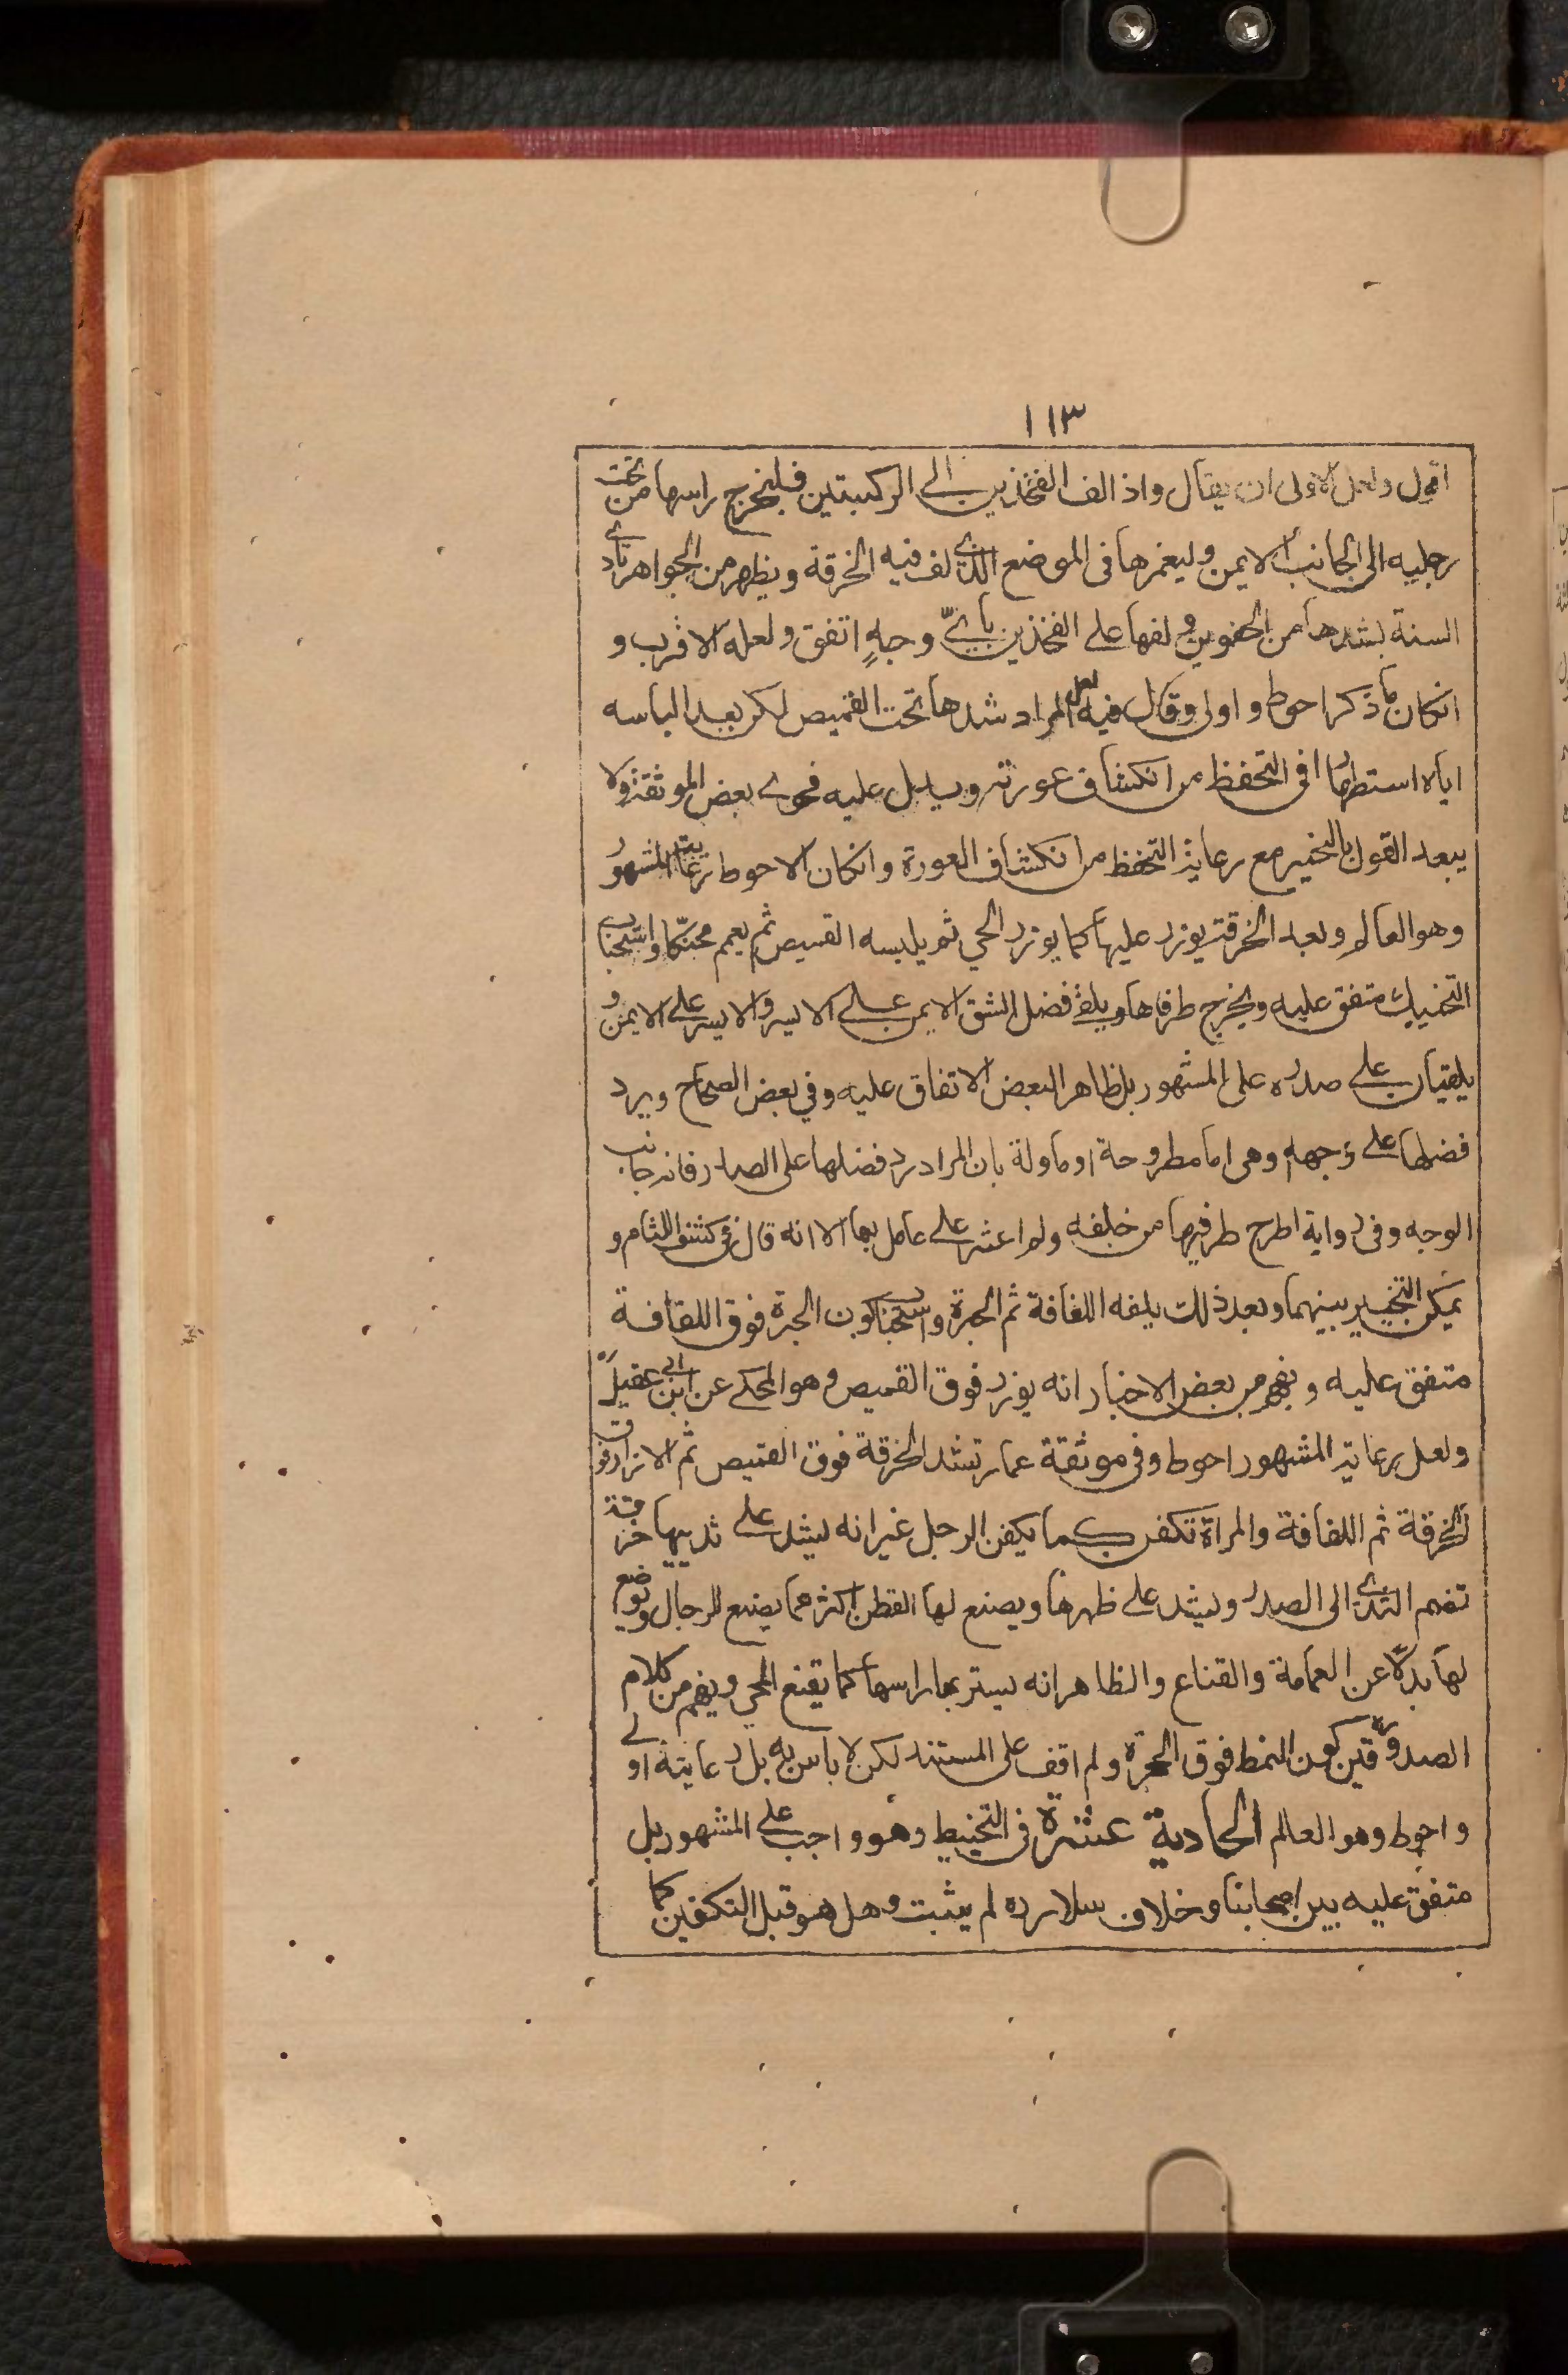 ١١٣
اقول ولعل الاولى ان يقال واذ الف الفخذين الى الركبتين فليخرج راسها من تحت
رجليه الى الجانب الايمن وليغمزها فى الموضع الذى لف فيه الخرقة ويظهر من الجواهر تادى
السنة بشدها من الحقوين و لفها على الفخذين باىّ وجهٍ اتفق ولعله الاقرب و
انكان ما ذكر احوط و اولى وقال فيه لعل المراد شدها تحت القميص لكن بعد الباسه
اياه استظهارا فى التحفظ من انكشاف عورته ويدل عليه فحوى بعض الموثقة ولا
يبعد القول بالتخير مع رعاية التحفظ من انكشاف العورة وانكان الاحوط رعاية المشهور
وهو العالم وبعد الخرقة يوزر عليها كما يوزر الحي ثم يلبسه القميص ثم يعمم محنّكا واستحباب
التحنيك متفق عليه ويخرج طرفاها ويلقى فضل الشق الايمن على الايسر والايسر على الايمن و
يلقيان على صدره على المشهور بل ظاهر البعض الاتفاق عليه وفي بعض الصحاح ويرد
فضلها على وجهه وهى اما مطروحة او ماولة بان المراد رد فضلها على الصدر فانه جانب
الوجه وفى رواية اطرح طرفيها من خلفه ولم اعثر على عامل بها الا انه قال فى كشف اللثام و
يمكن التخيير بينهما وبعد ذلك يلفه اللفافة ثم الحبرة واستحباب كون الحبرة فوق اللفافة
متفق عليه و يفهم من بعض الاخبار انه يوزر فوق القميص و هو المحكى عن ابن ابى عقيل ره
ولعل رعاية المشهور احوط وفى موثقة عمار تشد الخرقة فوق القميص ثم الازار فوق
الخرقة ثم اللفافة والمراة تكفن كما يكفن الرجل غير انه ليشد على ثدييها خرقة
تضم الثدى الى الصدر وليشد على ظهرها ويصنع لها القطن اكثر مما يصنع للرجال ويوضع
لها بدلا عن العمامة والقناع والظاهر انه يستر بها راسها كما يقنع الحي ويفهم من كلام
الصدوقين ره كون النمط فوق الحبرة ولم اقف على المستند لكن لا باس به بل رعايته اولى
و احوط وهو العالم الحادية عشرة فى التحنيط وهو واجب على المشهور بل
متفق عليه بين اصحابنا وخلاف سلار ره لم يثبت وهل هو قبل التكفين كما